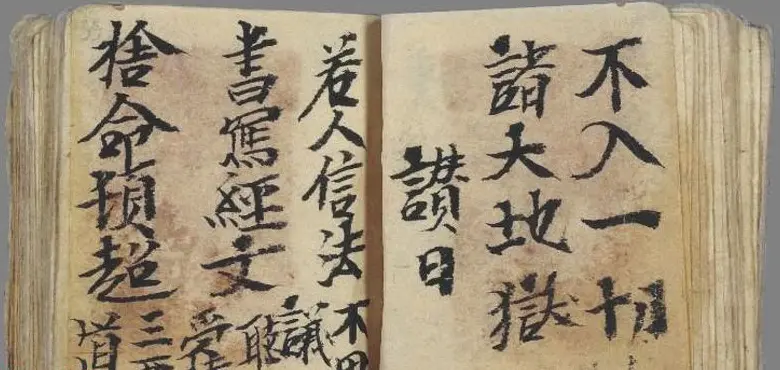 不入一切
諸大地獄
讚曰
若人信法不思
議
書寫經文聽
受
捨命頓超三
道